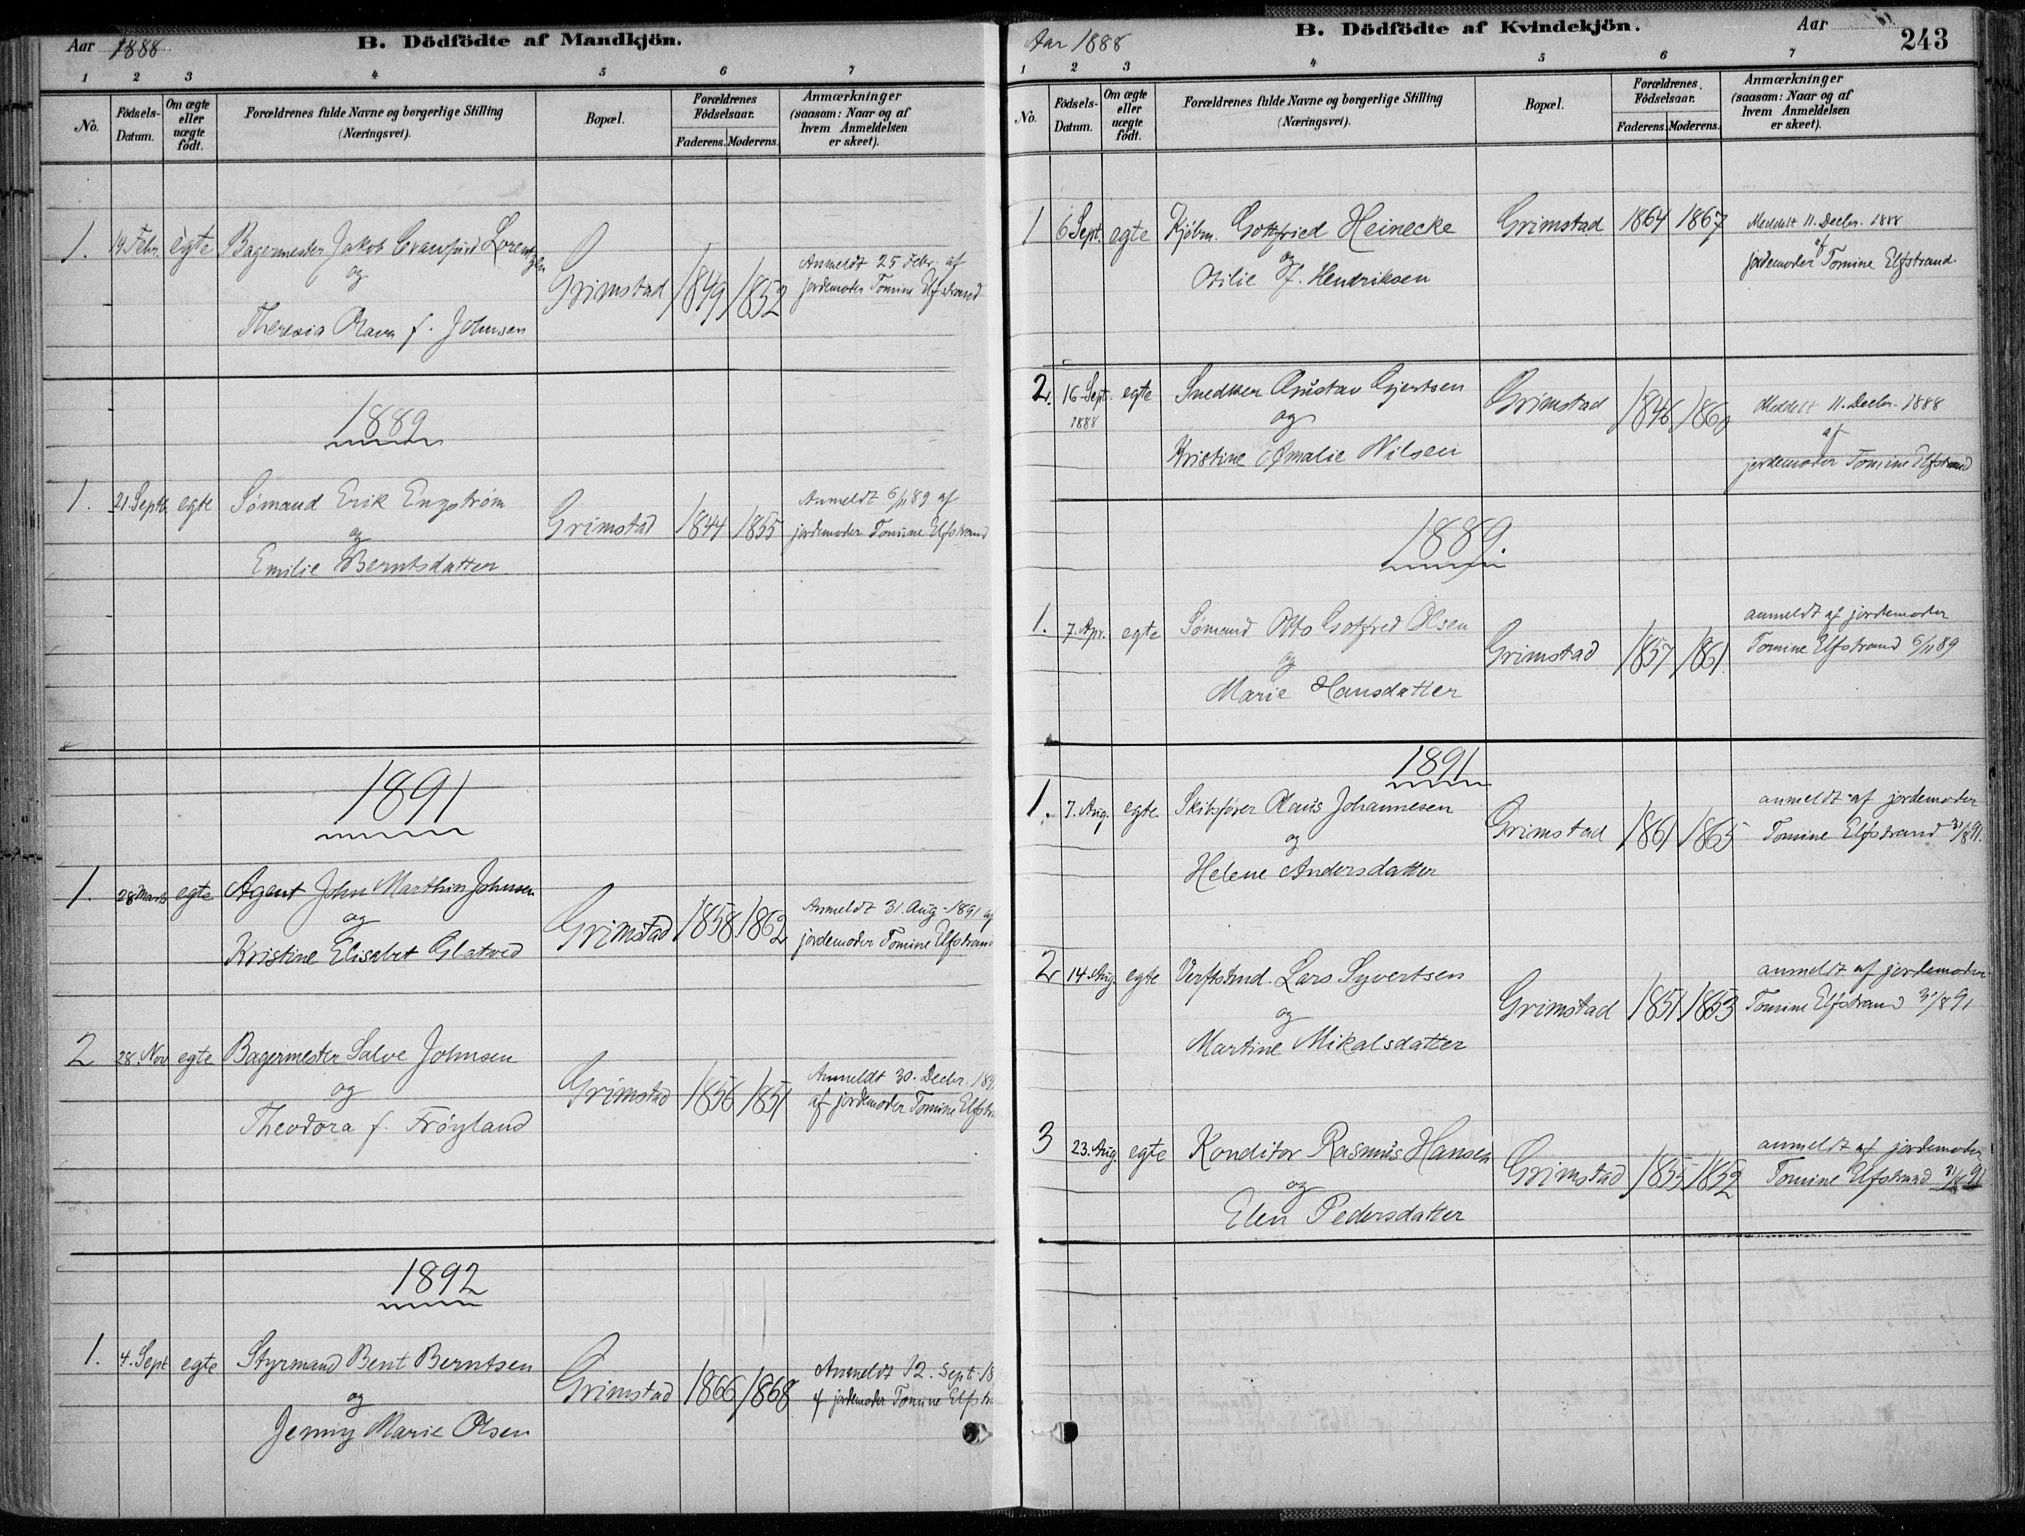 Aar 1888
B. Dödfödte af Mandkjön.
1 2 3 4 5 6 7
No.
Födsels-Datum.
Om ægte eller uægte födt.
Forældrenes fulde Navne og borgerlige Stilling (Næringsvei).
Bopæl.
Forældrenes Födselsaar.
Faderens. Moderens.
Anmærkninger (saasom: Naar og af hvem Anmeldelsen er skeet).
1. 14 Febr. egte Bagermester Jakob Crawfurd Lorentzen
og
Theresia Olava f. Johnsen
Grimstad 1849 1852
Anmeldt 25 Febr. af
jordemoder Tomine Elfstrand
1889
1. 21. Septb. egte Sømand Erik Engstrøm
og
Emilie Berntsdatter
Grimstad 1844 1855
Anmeldt 6/11 89 af
jordemoder Tomine Elfstrand
1891
1. 28 Marts egte Agent John Marthin Johnsen
og
Kristine Elisabet Glatved
Grimstad 1858 1862
Anmeldt 31. Aug. 1891 af
jordemoder Tomine Elfstrand
2 28. Nov egte Bagermester Salve Johnsen
og
Theodora f. Frøyland
Grimstad 1856 1851
Anmeldt 30. Decbr. 189
af jordemoder Tomine Elfstra
1892
1. 4. Sept egte Styrmand Bent Berntsen
og
Jenny Marie Olsen
Grimstad 1866 1868
Anmeldt 12. Sept. 18
af jordemoder Tomine Elfstra
Aar 1888
B. Dödfödte af Kvindekjön.
Aar
243
1 2 3 4 5 6 7
No.
Födsels-Datum.
Om ægte eller uægte födt.
Forældrenes fulde Navne og borgerlige Stilling (Næringsvei).
Bopæl.
Forældrenes Födselsaar.
Faderens. Moderens.
Anmærkninger (saasom: Naar og af hvem Anmeldelsen er skeet).
1 6 Sept. egte Kjøbm. Gottfried Heinecke
og
Otilie f. Hendriksen
Grimstad 1864 1867
Meddelt 11. Decbr. 1888
af
jordemoder Tomine Elfstrand
2. 16. Sept. 1888 egte Snedker Gustav Gjertsen
og
Kristine Amalie Nilsen
Grimstad 1846 1860
Meddelt 11. Decbr. 1888
af
jordemoder Tomine Elfstrand
1889.
1. 7. Apr. egte Sømand Otto Gotfred Olsen
og
Marie Hansdatter
Grimstad 1857 1861.
anmeldt af jordemoder
Tomine Elfstrand 6/11 89
1891
1. 7. Aug. egte Skibsfører Olaus Johannesen
og
Helene Andersdatter
Grimstad 1861 1865
anmeldt af jordemoder
Tomine Elfstrand 31/8 91.
2 14. Aug. egte Verftstmd. Lars Syvertsen
og
Martine Mikalsdatter
Grimstad 1851 1853
anmeldt af jordemoder
Tomine Elfstrand 31/8 91
3 23. Aug. egte Konditor Rasmus Hansen
og
Elen Pedersdatter
Grimstad 1855 1852
anmeldt af jordemoder
Tomine Elfstrand 31/8 91